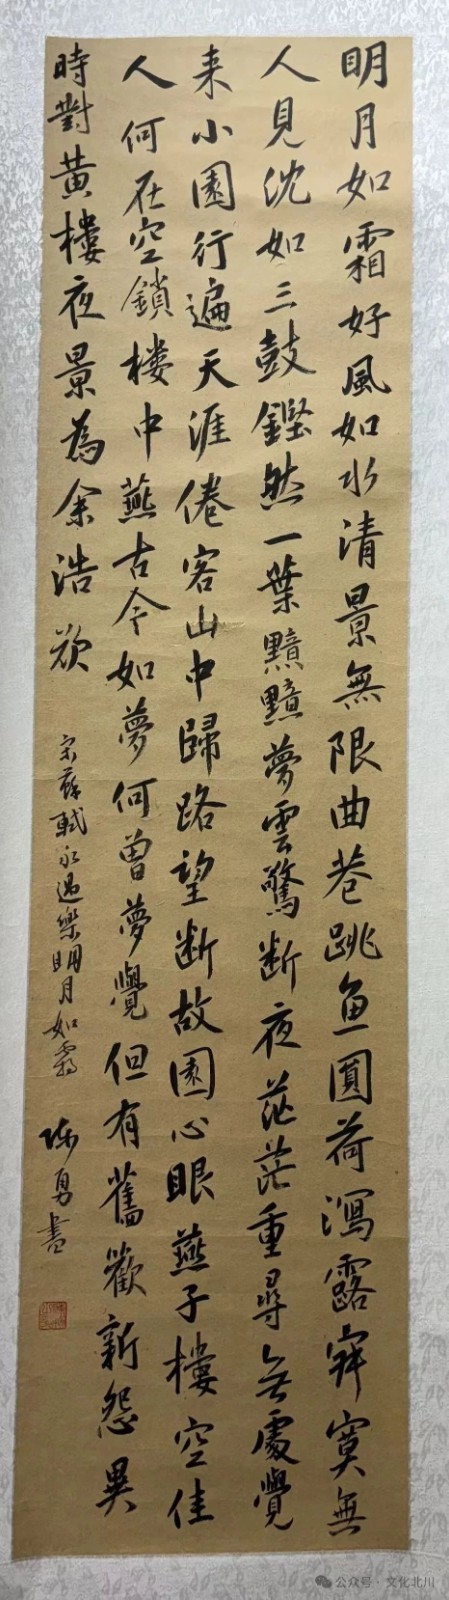 明月如霜好風如水清景無限曲巷跳鱼圓荷瀉露寂寞無
人見沈如三鼓鏗然一葉黯黯夢雲驚断夜茫茫重尋无處覺
来小園行遍天涯倦客山中歸路望断故園心眼燕子樓空佳
人何在空鎖楼中燕古今如夢何曾夢覺但有舊歡新怨異
時對黄樓夜景為余浩歎
宋蘇軾永遇樂明月如霜
陳勇書
公众号·文化北川